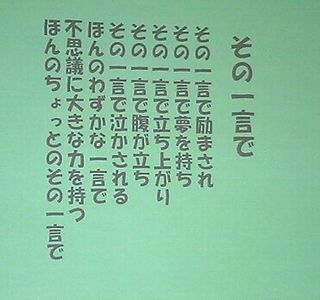 その一言で
その一言で励まされ
その一言で夢を持ち
その一言で立ち上がり
その一言で腹が立ち
その一言で泣かされる
ほんのわずかな一言で
不思議に大きな力を持つ
ほんのちょっとのその一言で